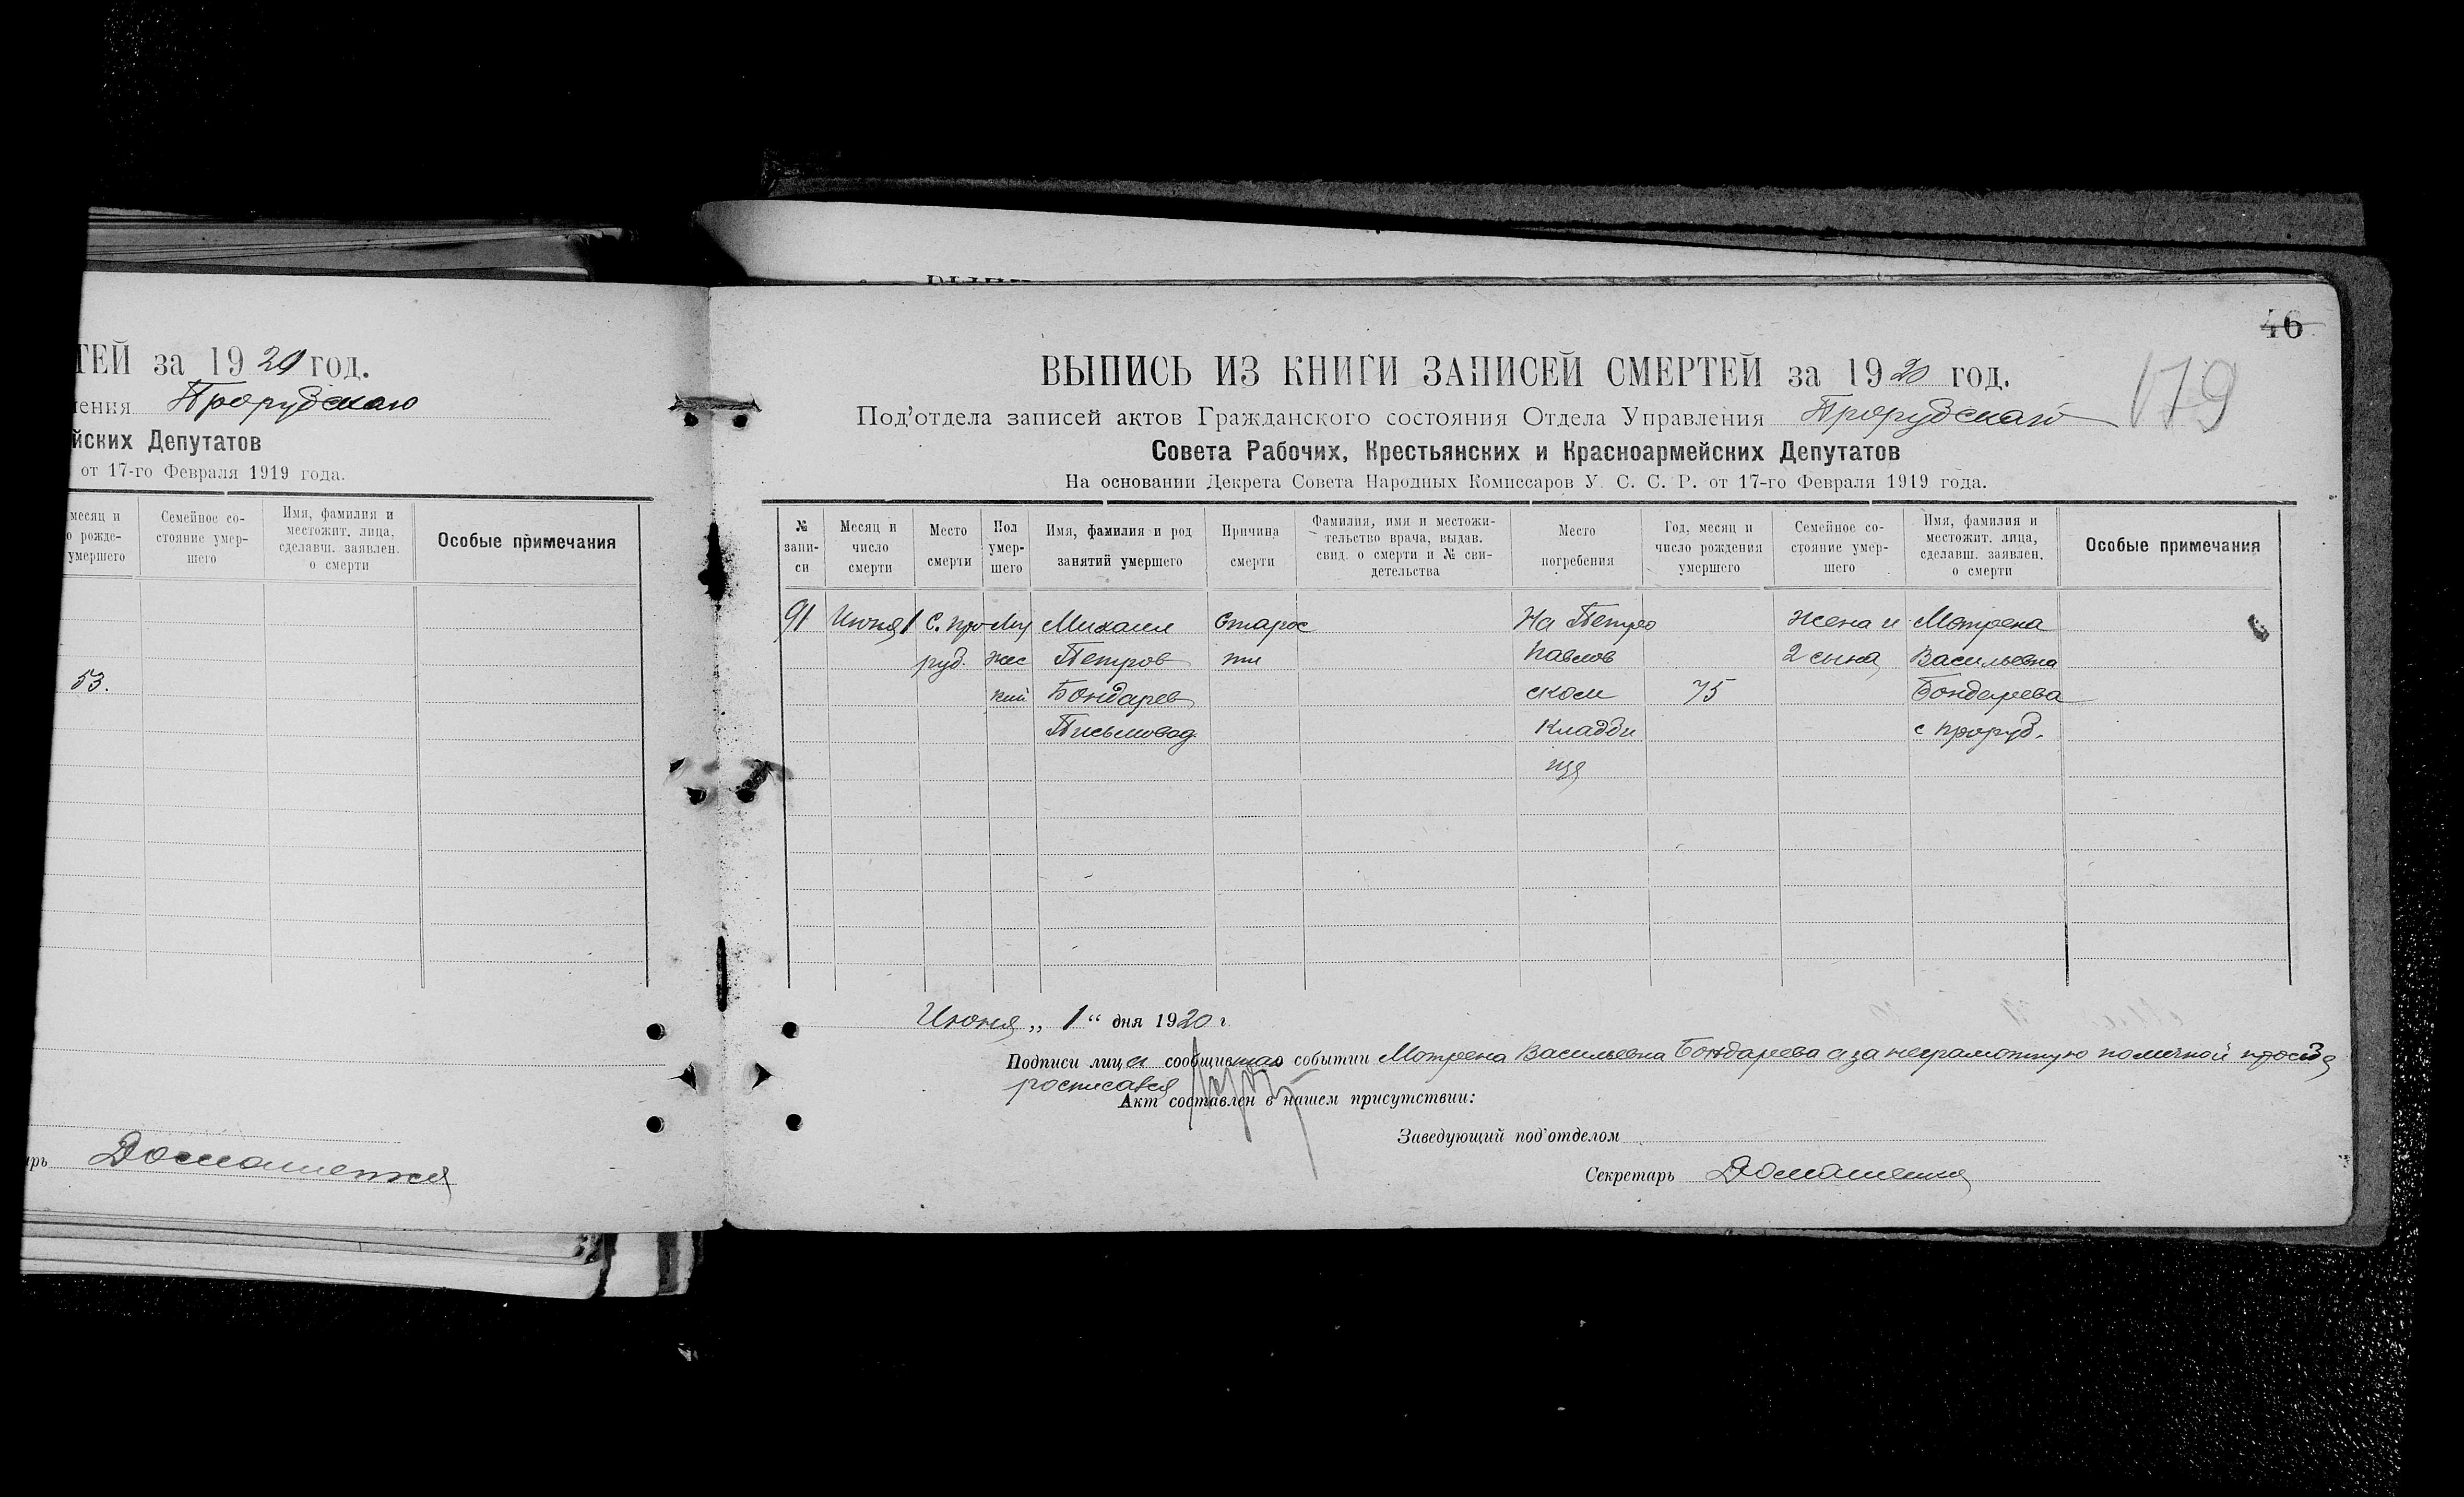 ТЕЙ за 1920 год.
ления Прорубскаго
йских Депутатов
от 17-го Февраля 1919 года.
месяц и
о рожде-
умершего
Семейное со-
стояние умер-
шего
Имя, фамилия и
местожит. лица,
сделавш. заявлен.
о смерти
Особые примечания
53.
рь Домашенко
46
179
ВЫПИСЬ ИЗ КНИГИ ЗАПИСЕЙ СМЕРТЕЙ за 1920 год.
Под'отдела записей актов Гражданского состояния Отдела Управления Прорубскаго
Совета Рабочих, Крестьянских и Красноармейских Депутатов
На основании Декрета Совета Народных Комиссаров У. С. С. Р. от 17-го Февраля 1919 года.
№
запи-
си
Месяц и
число
смерти
Место
смерти
Пол
умер-
шего
Имя, фамилия и род
занятий умершего
Причина
смерти
Фамилия, имя и местожи-
тельство врача, выдав.
свид. о смерти и № сви-
детельства
Место
погребения
Год, месяц и
число рождения
умершего
Семейное со-
стояние умер-
шего
Имя, фамилия и
местожит. лица,
сделавш. заявлен.
о смерти
Особые примечания
91 Июня 1 С. Про Му Михаил Старос На Петро Жена и Мотрена
руб. жес Петров ти павлов 2 сына Васильевна
кий Бондарев ском 75 Бондарева
Письмовод. кладби с Проруб.
ща
Июня „ 1 “ дня 1920 г.
Подписи лица сообщившаго событии Мотрена Васильевна Бондарева а за неграмотную по личной просьбе
росписался
Акт составлен в нашем присутствии:
Заведующий под'отделом
Секретарь Домашенко